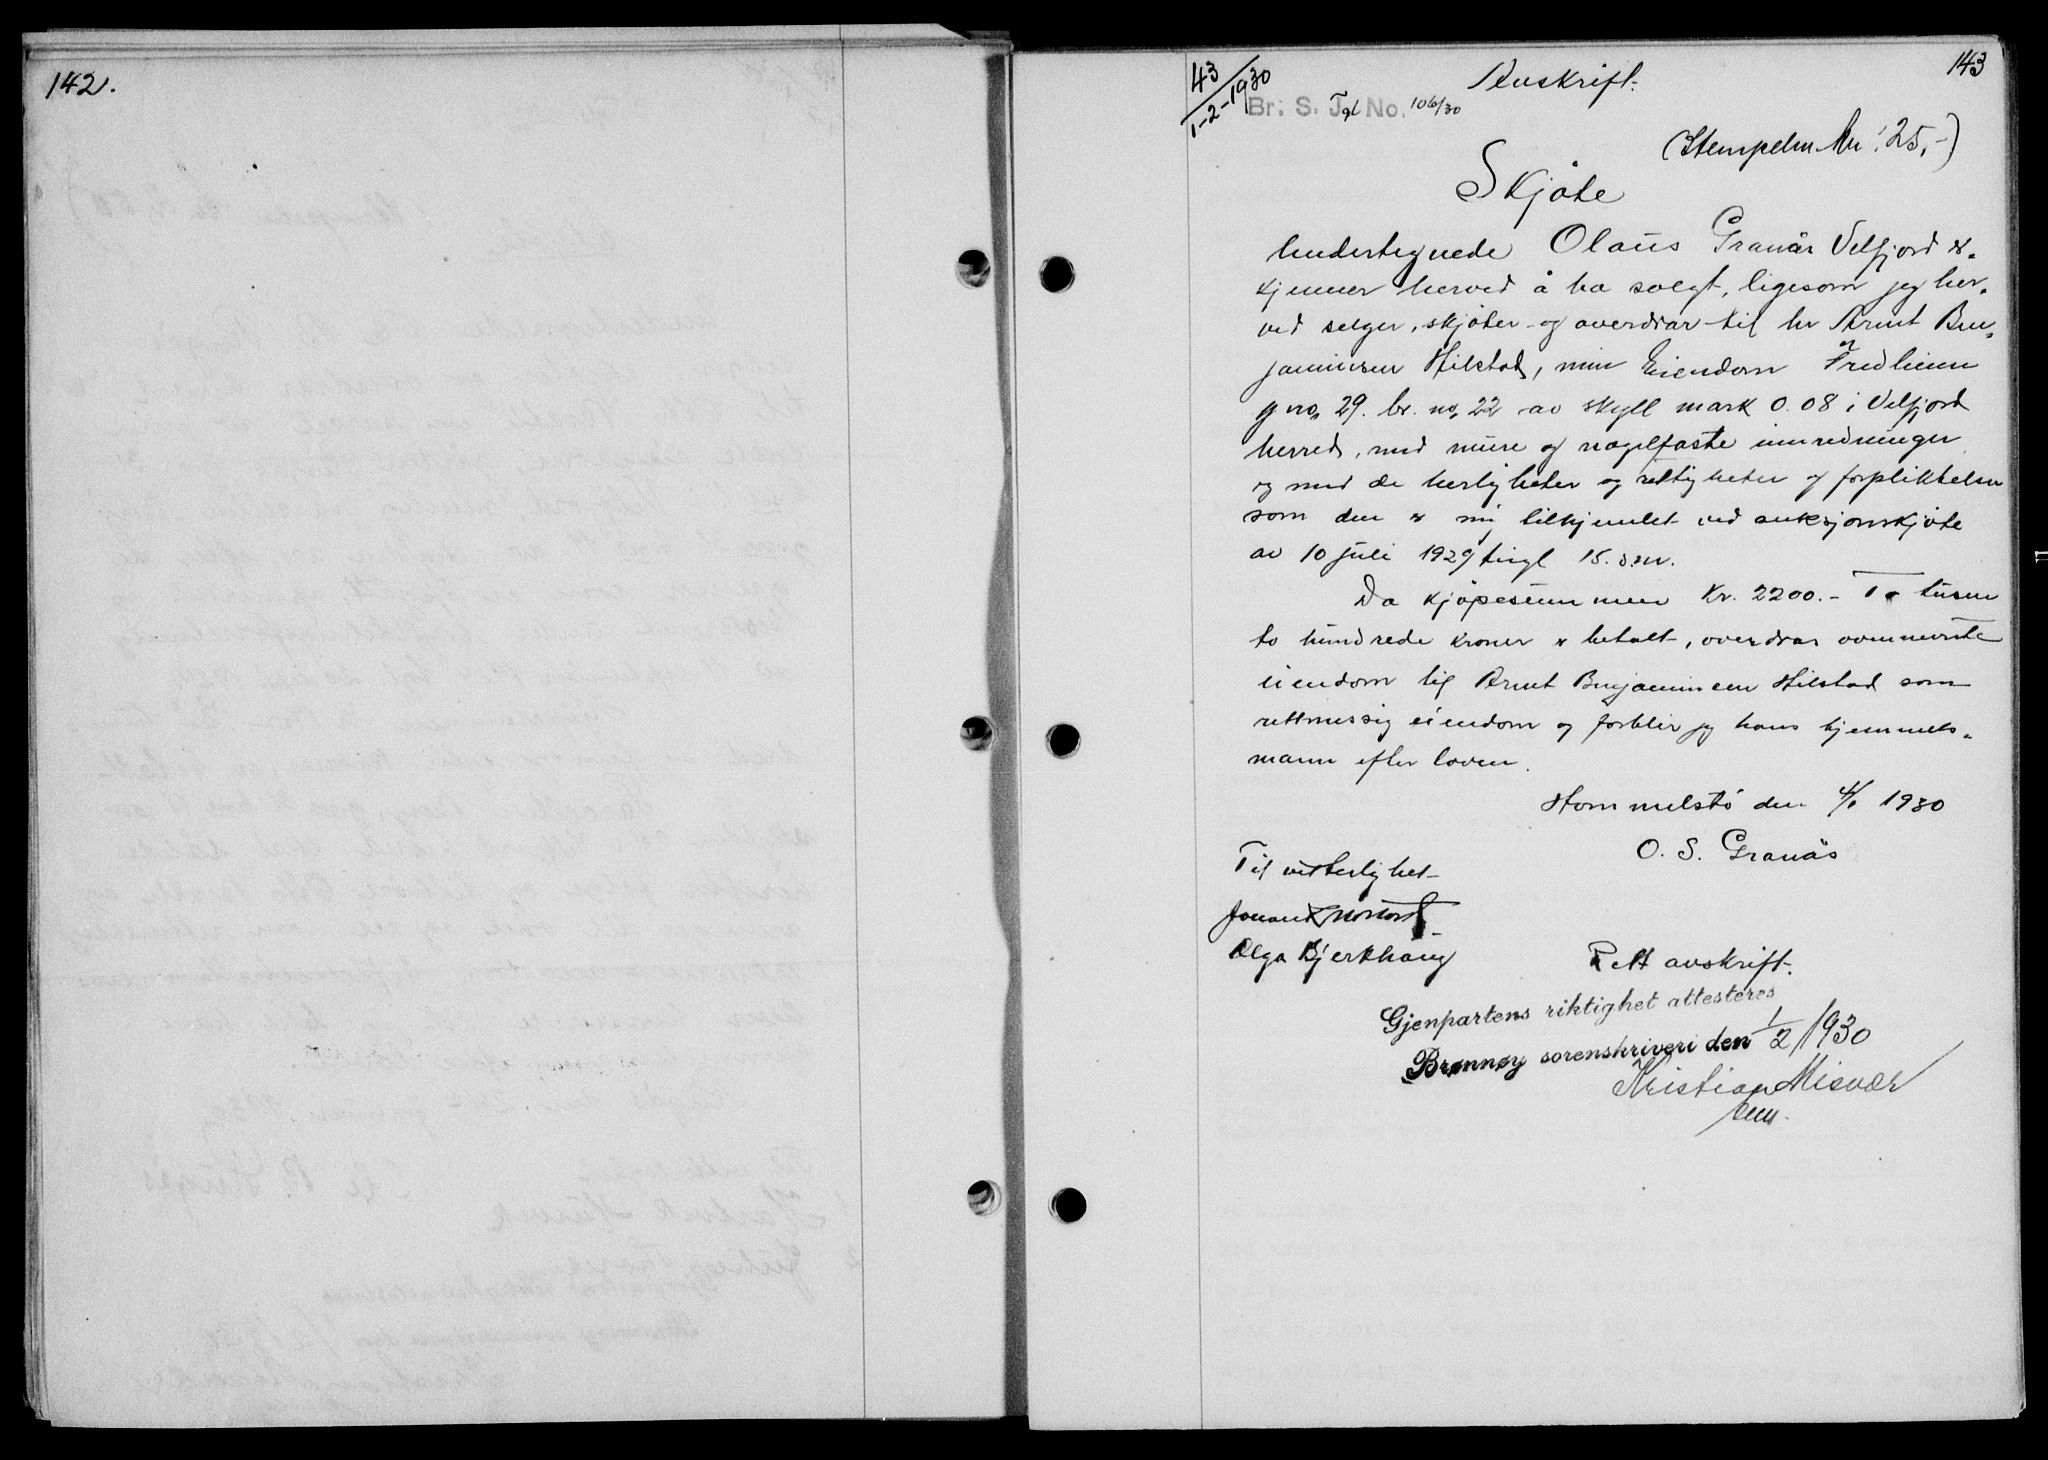 142.
143
43
1-2-1930
Br. S. Tgl No. 106/30
Avskrift.
(Stempelm. Kr. 25,-)
Skjøte
Undertegnede Olaus Granås Velfjord er-
kjenner herved å ha solgt, ligesom jeg her-
ved selger, skjøter og overdrar til hr Arnt Ben-
jaminsen Hilstad, min Eiendom Fredheim
g no, 29. br. no, 22 av skyll mark 0.08 i Velfjord
herred, med mure og nagelfaste innredninger
og med de herligheter og rettigheter og forpliktelser
som den er mig tilhjemlet ved auksjonsskjøte
av 10 juli 1929 tingl 15. s.m.
Da kjøpesummen Kr. 2200.- To tusen
to hundrede kroner er betalt, overdras ovennevnte
eiendom til Arnt Benjaminsen Hilstad som
rettmessig eiendom og forblir jeg hans hjemmels-
mann efter loven.
Hommelstø den 4/1 1930
O. S. Granås
Til vitterlighet
Olga Bjerkhaug
Rett avskrift.
Gjenpartens riktighet attesteres
Brønnøy sorenskriveri den 1/2 1930
Kristian Misvær